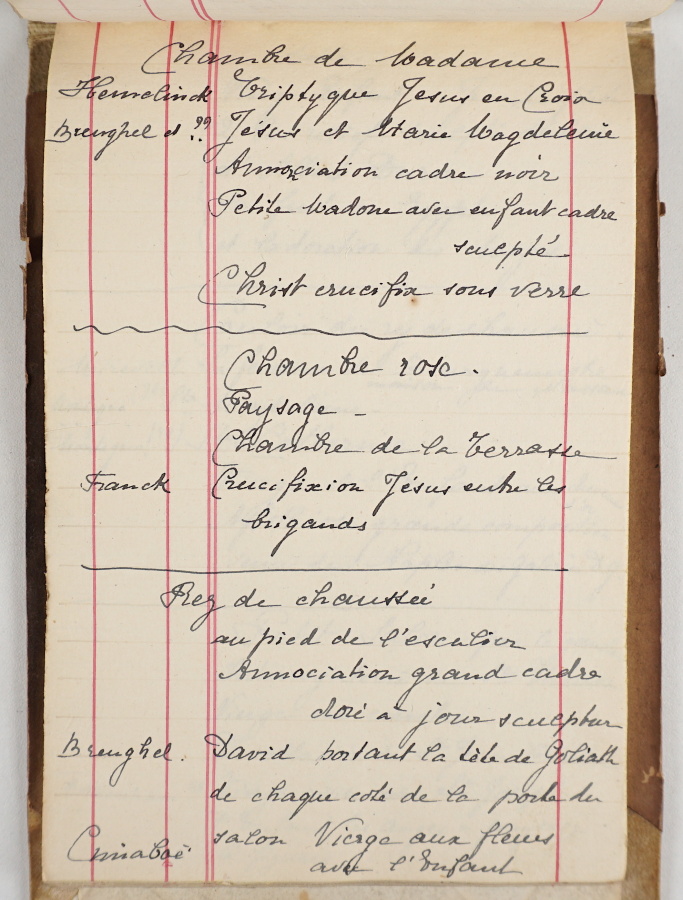 Chambre de Madame
Hemelinck Triptyque Jesus en Croix
Breughel et ?? Jésus et Marie Magdeleine
Annociation cadre noir
Petite Madone avec enfant cadre
sculpté
Christ crucifix sous verre
Chambre rose.
Paysage –
Chambre de la Terrasse
Franck Crucifixion Jésus entre les
brigands
Rez de chaussée
au pied de l'escalier
Annociation grand cadre
doré à jour sculpture
Breughel. David portant la tête de Goliath
de chaque coté de la porte du
salon Vierge aux fleurs
Cimaboë avec l'Enfant